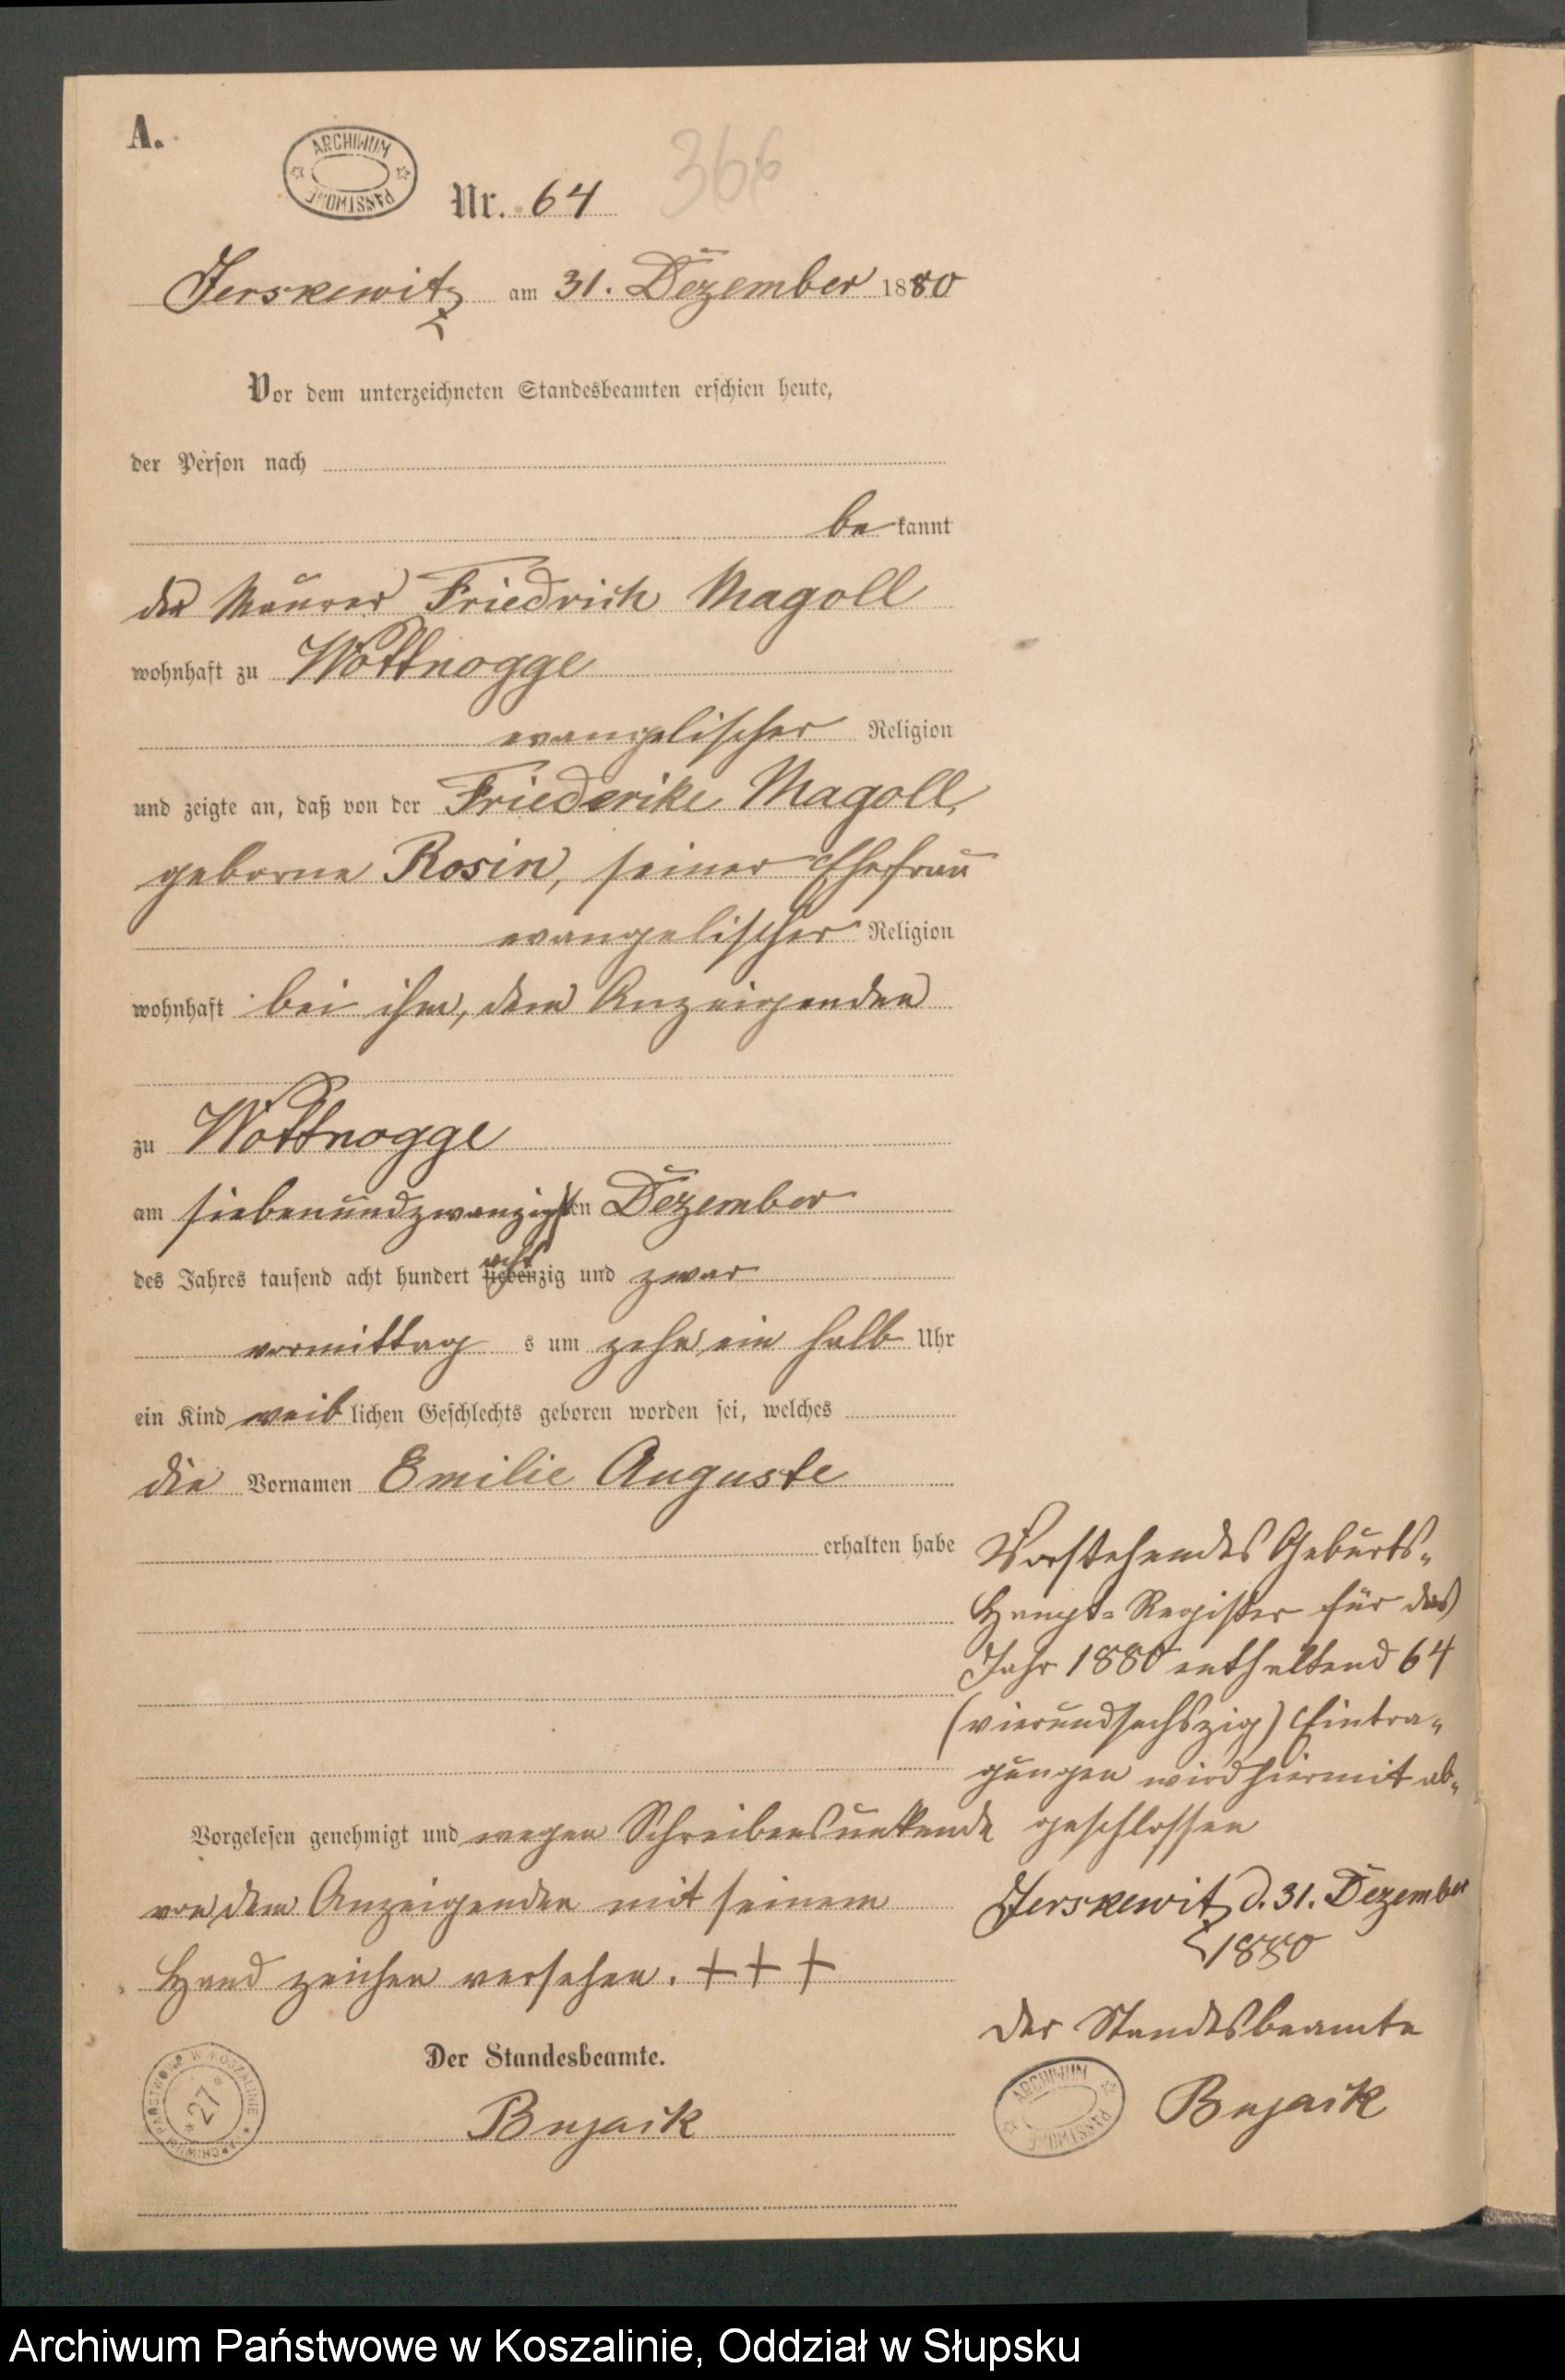 A.
ARCHIWUM PAŃSTWOWE
Nr. 64
366
Jerskewitz am 31. Dezember 1880
Vor dem unterzeichneten Standesbeamten erschien heute,
der Person nach
be kannt
der Maurer Friedrich Magoll
wohnhaft zu Wottnogge
evangelischer Religion
und zeigte an, daß von der Friederike Magoll,
geborne Rosin, seiner Ehefrau
evangelischer Religion
wohnhaft bei ihm, dem Anzeigenden
zu Wottnogge
am siebenundzwanzigsten Dezember
des Jahres tausend acht hundert siebenzig und zwar
acht
vormittag s um zehn ein halb Uhr
ein Kind weib lichen Geschlechts geboren worden sei, welches
die Vornamen Emilie Auguste
erhalten habe
Vorgelesen genehmigt und wegen Schreibensunkunde
von dem Anzeigenden mit seinem
Hand zeichen versehen. +++
Der Standesbeamte.
ARCHIWUM PAŃSTWOWE W KOSZALINIE
* 27 *
Vorstehendes Geburts-
Haupt-Register für das
Jahr 1880 enthaltend 64
(vierundsechszig) Eintra-
gungen wird hiermit ab-
geschlossen
Jerskewitz d. 31. Dezember
1880
Der Standesbeamte
ARCHIWUM PAŃSTWOWE
Archiwum Państwowe w Koszalinie, Oddział w Słupsku